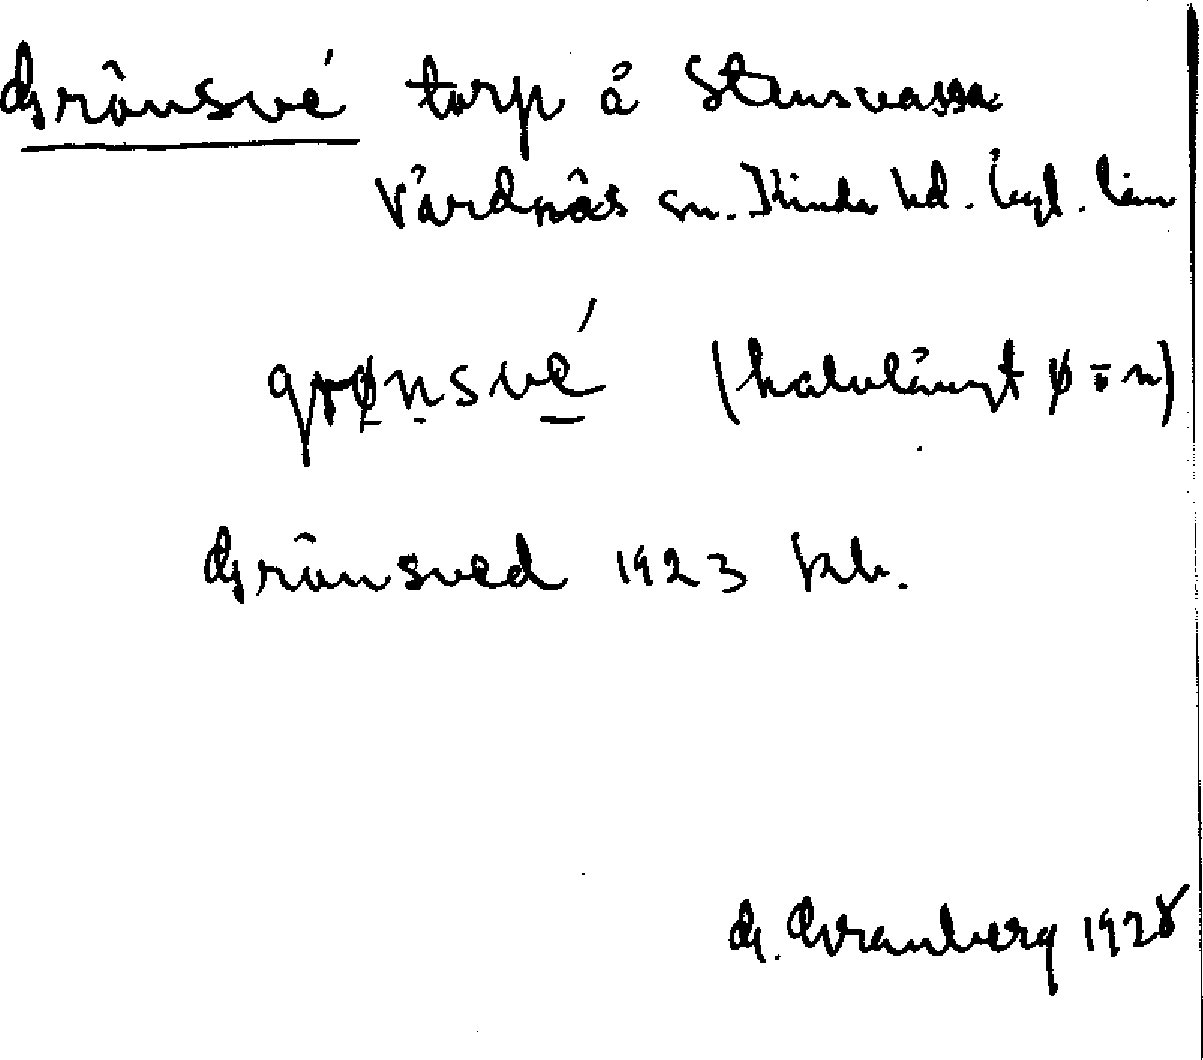 Grönsvé torp å Stensvassa
Vårdnäs sn. Kinda hd. Ögl. län
grønsvé (halvlångt ø = n)
Grönsved 1923 kb.
G. Granberg 1928